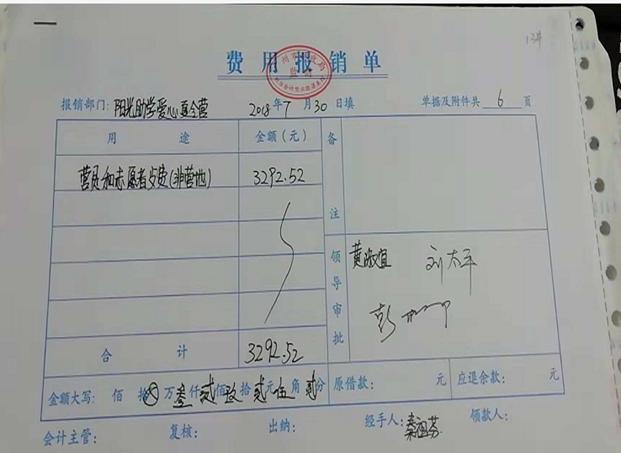 费用报销单
报销部门：阳光助学爱心夏令营 2018年7月30日填 单据及附件共 6 页
用途 金额（元） 备注
营员和志愿者歺费(非营地) 3292.52
领导审批 黄淑宜 刘太平
彭
合计 3292.52
金额大写： 佰 拾⊗万叁仟贰佰玖拾贰元伍角贰分 原借款： 元 应退余款： 元
会计主管： 复核： 出纳： 经手人：秦祖芬 领款人：